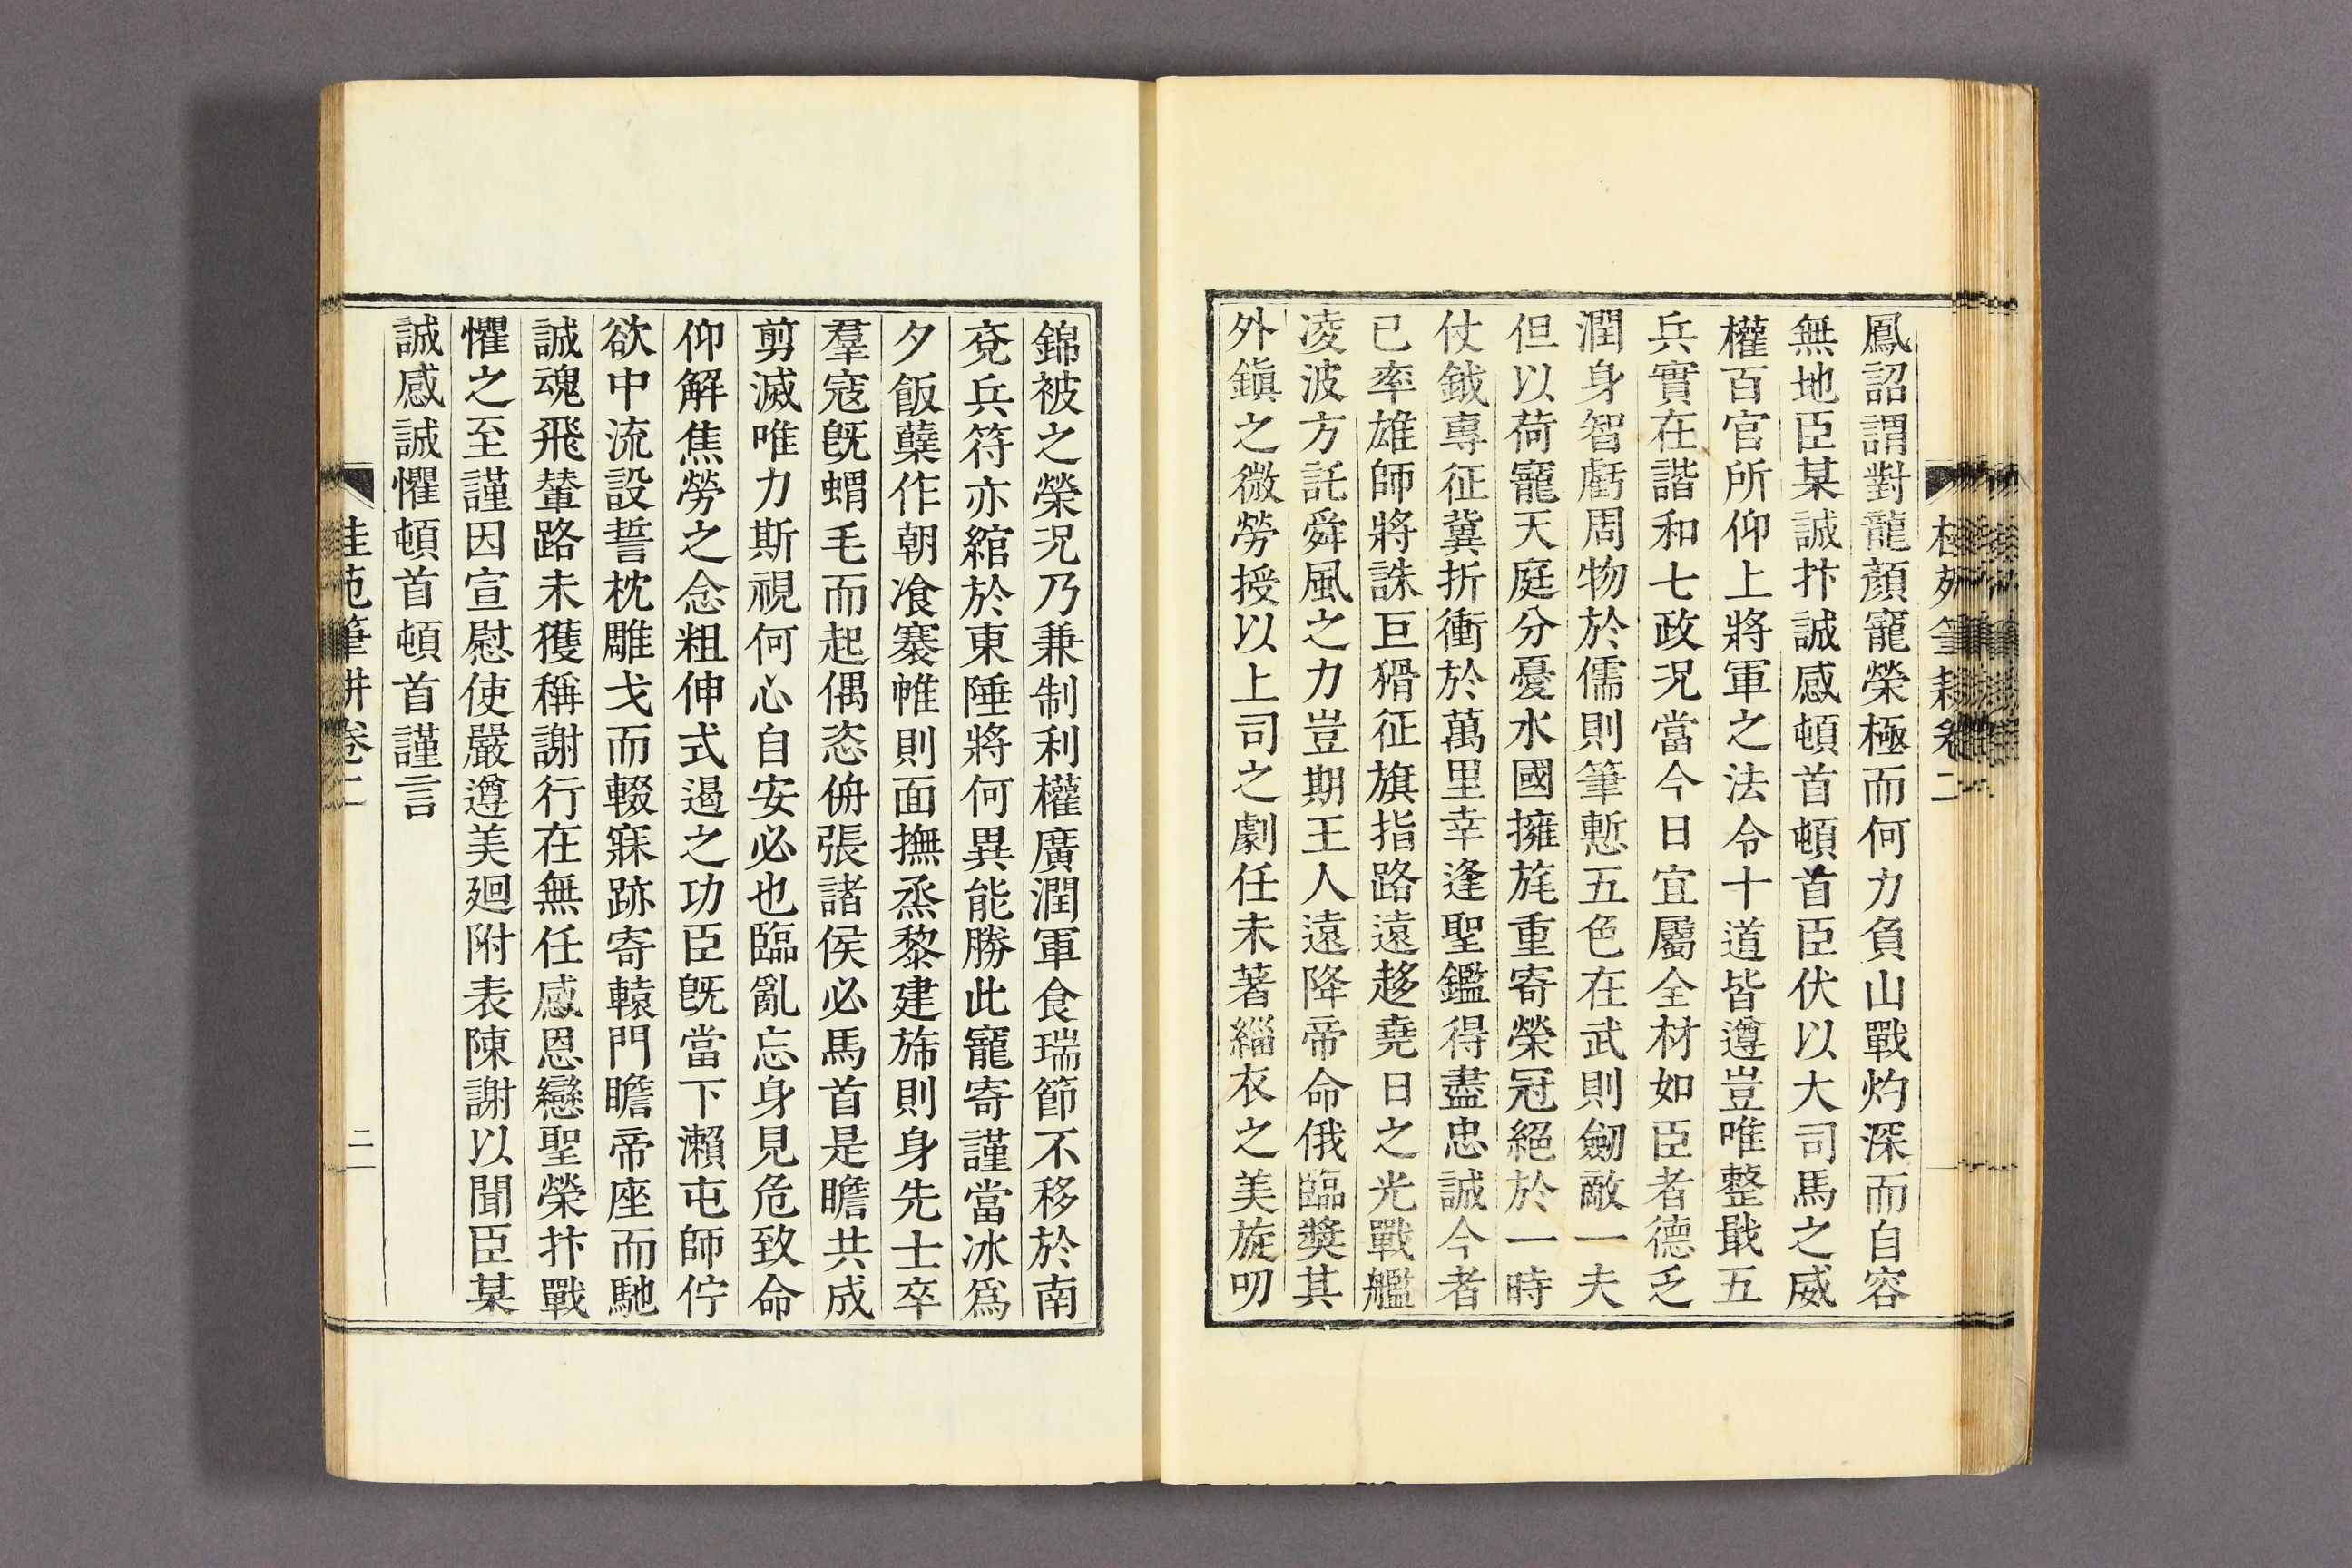 鳳詔謂對龍顏寵榮極而何力負山戰灼深而自容
無地臣某誠抃誠感頓首頓首臣伏以大司馬之威
權百官所仰上將軍之法令十道皆遵豈唯整戢五
兵實在諧和七政況當今日宜屬全材如臣者德乏
潤身智虧周物於儒則筆慙五色在武則劒敵一夫
但以荷寵天庭分憂水國擁旄重寄榮冠絕於一時
仗鉞專征冀折衝於萬里幸逢聖鑑得盡忠誠今者
已率雄師將誅巨猾征旗指路遠趍堯日之光戰艦
凌波方託舜風之力豈期王人遠降帝命俄臨奬其
外鎭之微勞授以上司之劇任未著緇衣之美旋叨
錦被之榮況乃兼制利權廣潤軍食瑞節不移於南
兗兵符亦綰於東陲將何異能勝此寵寄謹當冰爲
夕飯蘗作朝飡褰帷則面撫烝黎建斾則身先士卒
羣寇旣蝟毛而起偶恣侜張諸侯必馬首是瞻共成
剪滅唯力斯視何心自安必也臨亂忘身見危致命
仰解焦勞之念粗伸式遏之功臣旣當下瀨屯師佇
欲中流設誓枕雕戈而輟寐跡寄轅門瞻帝座而馳
誠魂飛輦路未獲稱謝行在無任感恩戀聖榮抃戰
懼之至謹因宣慰使嚴遵美廻附表陳謝以聞臣某
誠感誠懼頓首頓首謹言
桂苑筆耕卷二
二